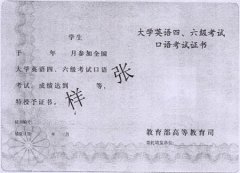 学生
于 年 月参加全国
大学英语四、六级考试口语
考试，成绩达到 等，
特授予证书。
样张
大学英语四、六级考试
口语考试证书
教育部高等教育司